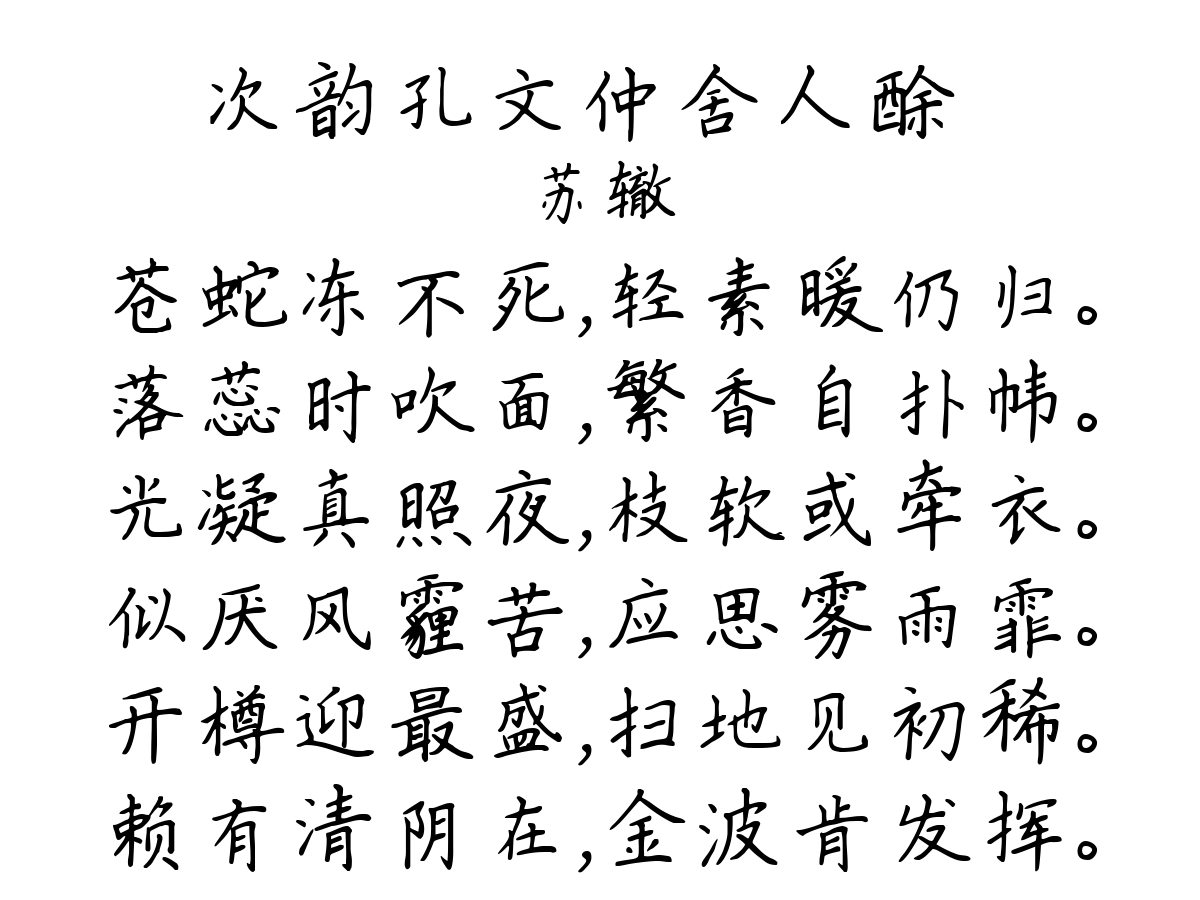 次韵孔文仲舍人酴
苏辙
苍蛇冻不死,轻素暖仍归。
落蕊时吹面,繁香自扑帏。
光凝真照夜,枝软或牵衣。
似厌风霾苦,应思雾雨霏。
开樽迎最盛,扫地见初稀。
赖有清阴在,金波肯发挥。